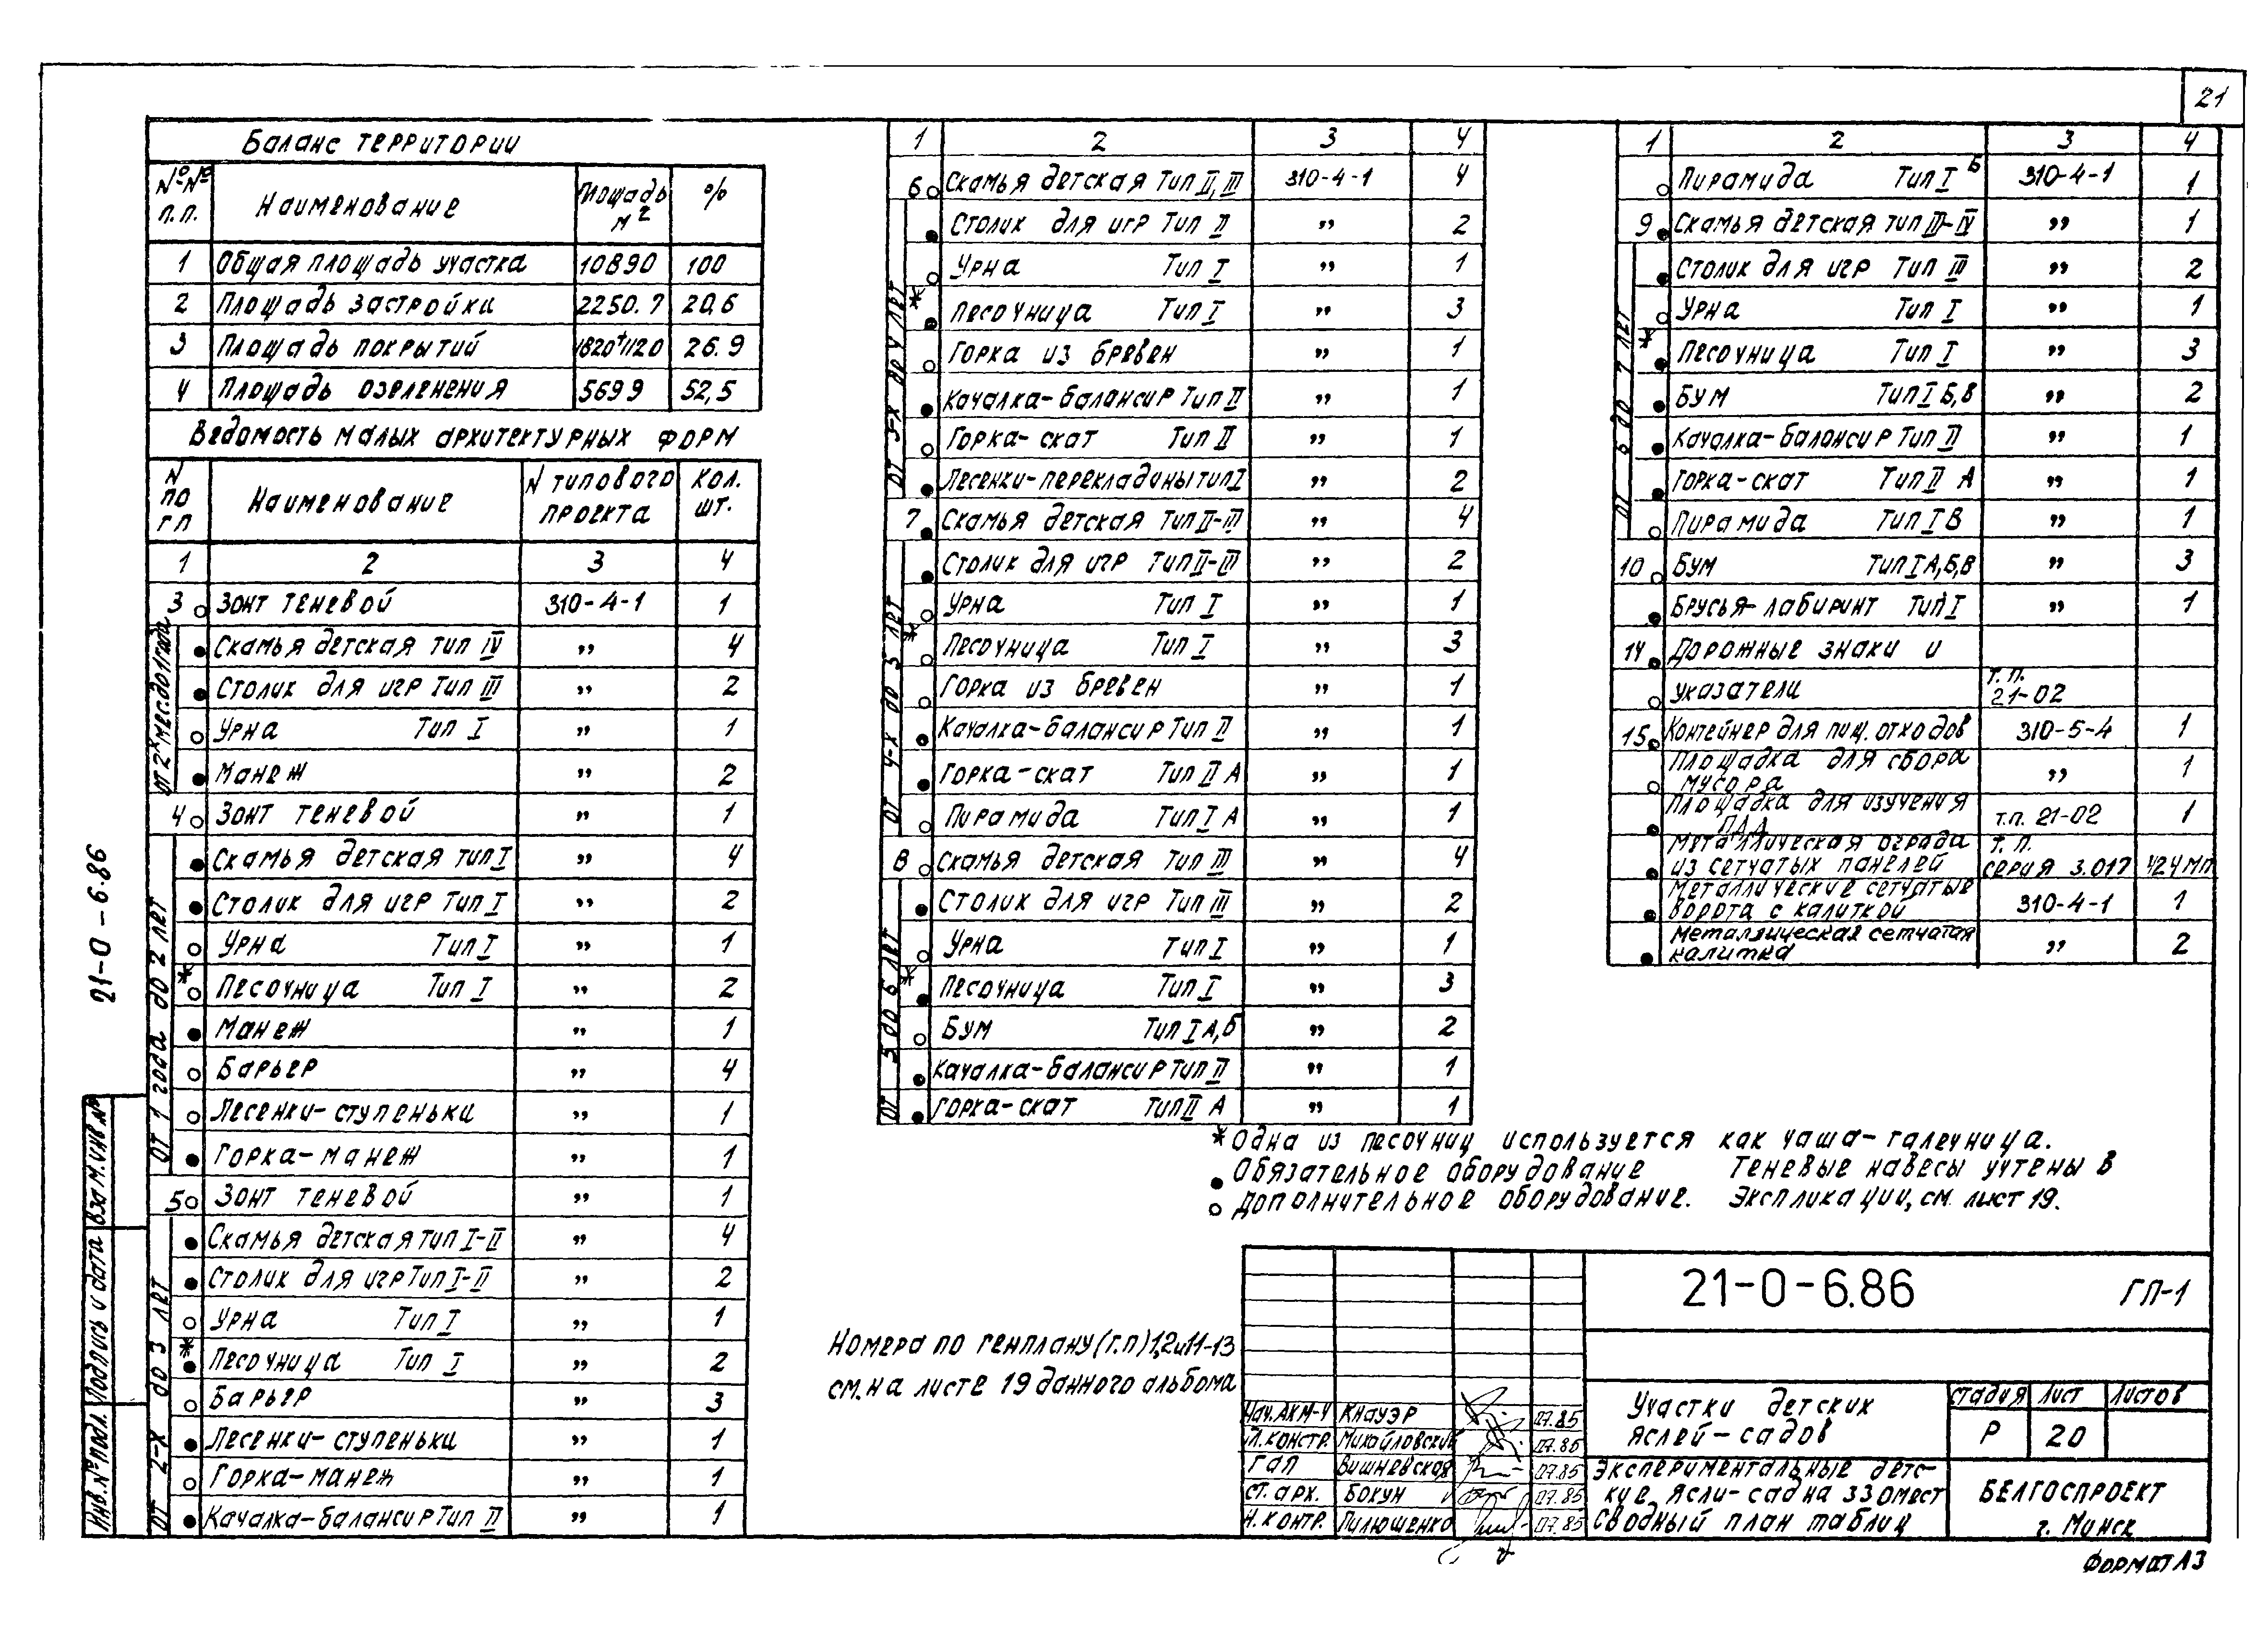 21
Баланс территории
№№ п.п. Наименование Площадь м² %
1 Общая площадь участка 10890 100
2 Площадь застройки 2250.7 20,6
3 Площадь покрытий 1820+1120 26.9
4 Площадь озеленения 5699 52,5
Ведомость малых архитектурных форм
N по гп Наименование N типового проекта Кол. шт.
1 2 3 4
3 ○ Зонт теневой 310-4-1 1
от 2х мес. до 1 года
● Скамья детская тип IV " 4
● Столик для игр Тип III " 2
○ Урна Тип I " 1
● Манеж " 2
4 ○ Зонт теневой " 1
от 1 года до 2 лет
● Скамья детская тип I " 4
● Столик для игр Тип I " 2
○ Урна Тип I " 1
* ○ Песочница Тип I " 2
● Манеж " 1
○ Барьер " 4
○ Лесенки-ступеньки " 1
● Горка-манеж " 1
5 ○ Зонт теневой " 1
от 2-х до 3 лет
● Скамья детская тип I-II " 4
● Столик для игр Тип I-II " 2
○ Урна Тип I " 1
* ● Песочница Тип I " 2
○ Барьер " 3
● Лесенки-ступеньки " 1
○ Горка-манеж " 1
● Качалка-балансир Тип II " 1
1 2 3 4
6 ○ Скамья детская Тип II, III 310-4-1 4
от 3-х до 4 лет
● Столик для игр Тип II " 2
○ Урна Тип I " 1
* ● Песочница Тип I " 3
○ Горка из бревен " 1
● Качалка-балансир Тип II " 1
○ Горка-скат Тип II " 1
● Лесенки-перекладины тип I " 2
7 ● Скамья детская Тип II-III " 4
от 4-х до 5 лет
● Столик для игр Тип II-III " 2
○ Урна Тип I " 1
* ○ Песочница Тип I " 3
○ Горка из бревен " 1
● Качалка-балансир Тип II " 1
● Горка-скат Тип II А " 1
○ Пирамида Тип I А " 1
8 ○ Скамья детская Тип III " 4
от 5 до 6 лет
● Столик для игр Тип III " 2
○ Урна Тип I " 1
* ● Песочница Тип I " 3
○ Бум Тип I А,б " 2
● Качалка-балансир Тип II " 1
● Горка-скат Тип II А " 1
1 2 3 4
○ Пирамида Тип I Б 310-4-1 1
9 ● Скамья детская тип III-IV " 1
от 6 до 7 лет
● Столик для игр Тип III " 2
○ Урна Тип I " 1
* ● Песочница Тип I " 3
● Бум Тип I Б,В " 2
● Качалка-балансир Тип II " 1
● Горка-скат Тип II А " 1
○ Пирамида Тип I В " 1
10 ○ Бум Тип I А,Б,В " 3
● Брусья-лабиринт Тип I " 1
14 ● Дорожные знаки и
○ указатели т.п. 21-02
15 ● Контейнер для пищ. отходов 310-5-4 1
○ Площадка для сбора мусора " 1
● Площадка для изучения ПДД т.п. 21-02 1
● Металлическая ограда из сетчатых панелей т.п. серия 3.017 424 мп
● Металлические сетчатые ворота с калиткой 310-4-1 1
● Металлическая сетчатая калитка " 2
* Одна из песочниц используется как чаша-галечница.
● Обязательное оборудование Теневые навесы учтены в
○ Дополнительное оборудование. Экспликации, см. лист 19.
Номера по генплану (г.п) 1,2 и 11-13
см. на листе 19 данного альбома
21-0-6.86 ГП-1
Нач. АКМ-4 Кнауэр 07.85
Гл. констр. Михайловский 07.85
ГАП Вишневская 07.85
Ст. арх. Бокун 07.85
Н. контр. Пилюшенко 07.85
Участки детских яслей-садов
Стадия Лист Листов
Р 20
Экспериментальные детские ясли-сад на 330 мест
Сводный план таблиц
БЕЛГОСПРОЕКТ
г. Минск
Формат А3
21-0-6.86
Инв. № подл. Подпись и дата Взам. инв №